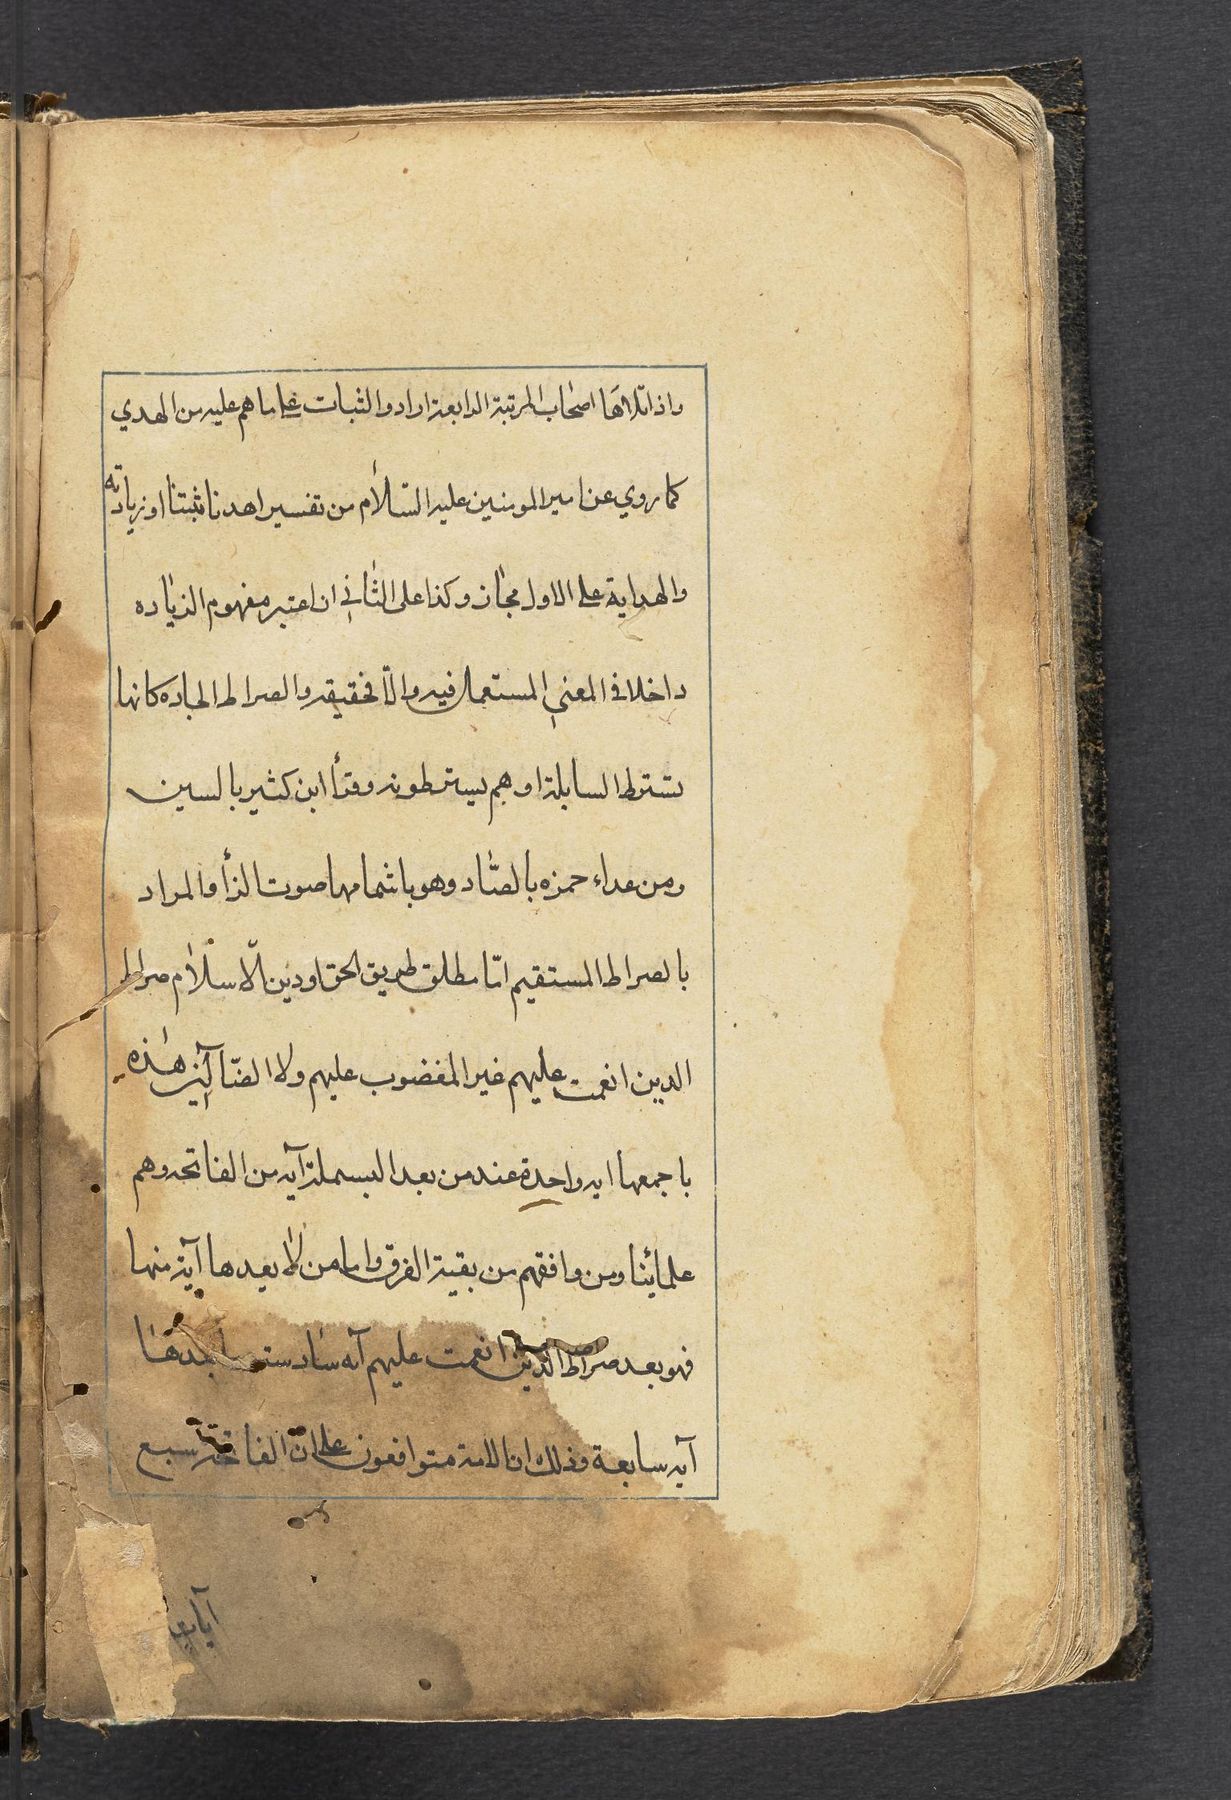 واذا تلاها اصحاب المرتبة الرابعة ارادوا الثبات على ما هم عليه من الهدي
كما روي عن امير المومنين عليه السّلام من تفسير اهدنا ثبتنا او زيادته
والهداية على الاول مجاز وكذا على الثاني ان اعتبر مفهوم الزياده
داخلا في المعني المستعمل فيه والّا فحقيقه والصراط الجاده كانها
تسترط السابلة او هم يسترطونه وقرأ ابن كثير بالسين
ومن عداء حمزه بالصّاد وهو باشمامها صوت الزأ والمراد
بالصراط المستقيم امّا مطلق طريق الحق او دين الّاسلام صراط
الدين انعمت عليهم غير المغضوب عليهم ولا الضّآلّين هذه
باجمعها ايه واحدة عند من بعد البسملة آيه من الفاتحه وهم
علمائنا ومن وافقهم من بقية الفرق واما من لا يعدها آية منها
فهو يعد صراط الّذين انعمت عليهم آيه سادسة وما بعدها
آيه سابعة وذلك ان الامة متوافقون على انّ الفاتحة سبع
آيات